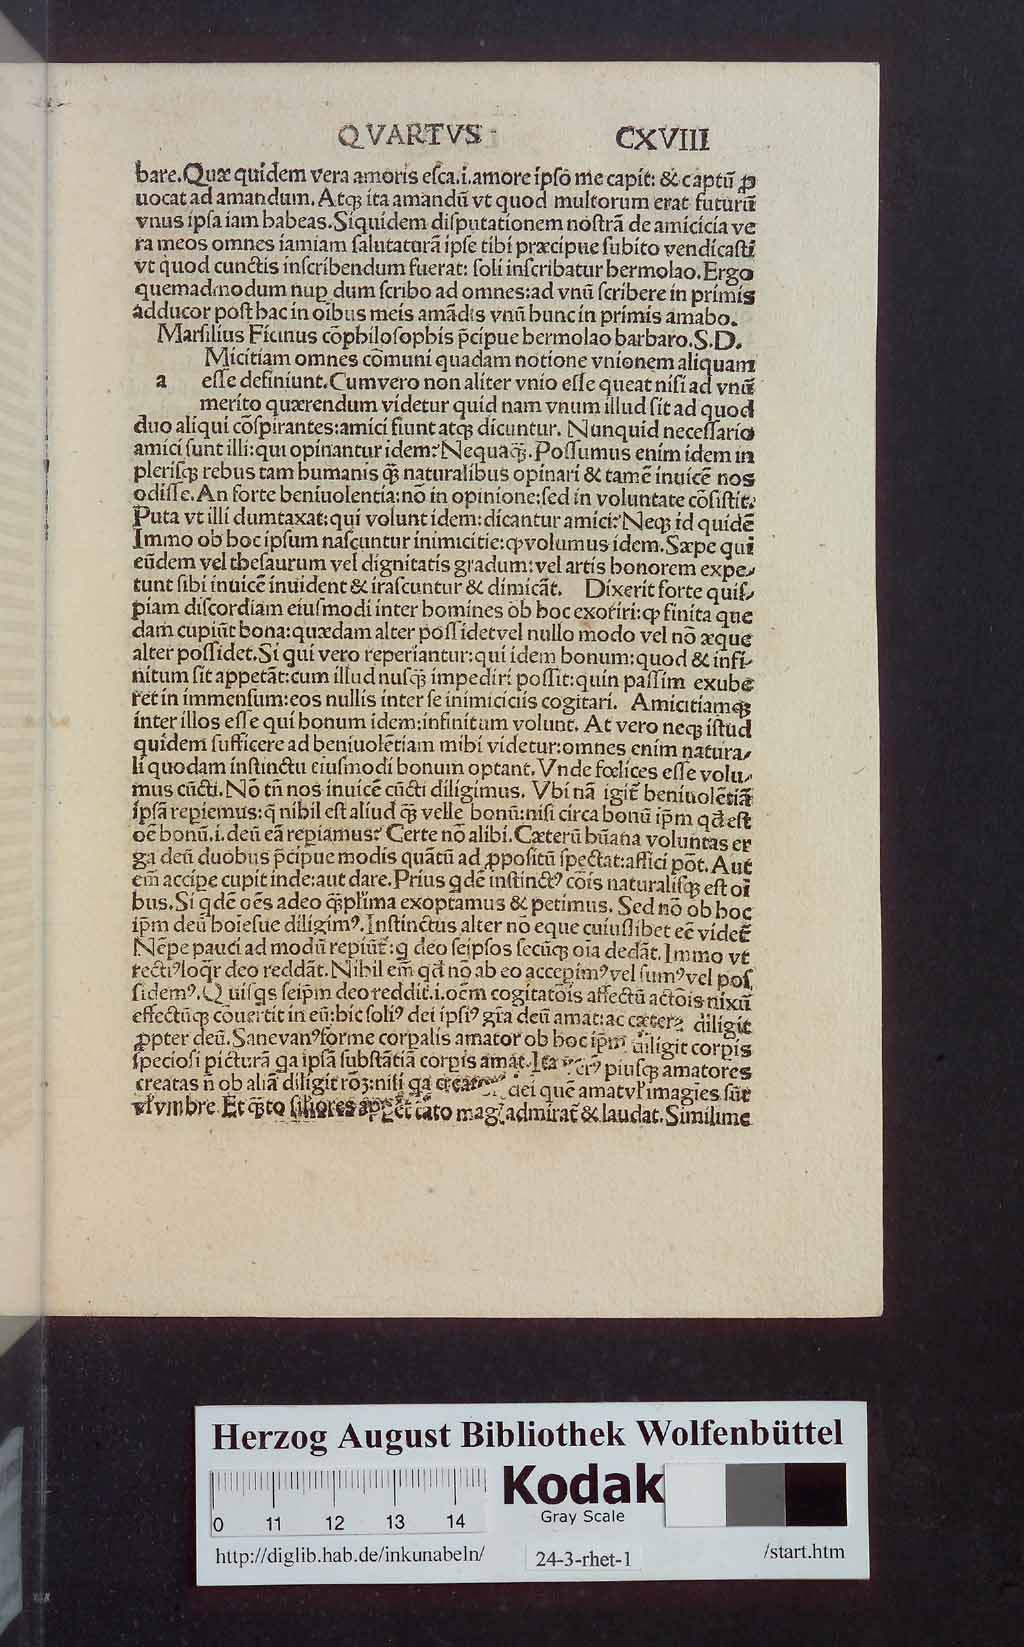 QVARTVS CXVIII
bare.Quæ quidem vera amoris eſca.i.amore ipſo me capit: & captū ꝓ
uocat ad amandum. Atqꝫ ita amandū vt quod multorum erat futurū
vnus ipſa iam habeas. Siquidem diſputationem noſtrā de amicicia ve
ra meos omnes iamiam ſalutaturā ipſe tibi præcipue ſubito vendicaſti
vt quod cunctis inſcribendum fuerat: ſoli inſcribatur hermolao. Ergo
quemadmodum nup dum ſcribo ad omnes: ad vnū ſcribere in primis
adducor poſt hac in oībus meis amādis vnū hunc in primis amabo.
Marſilius Ficinus cōphiloſophis p̄cipue hermolao barbaro. S. D.
Micitiam omnes cōmuni quadam notione vnionem aliquam
a eſſe definiunt. Cum vero non aliter vnio eſſe queat niſi ad vnū
merito quærendum videtur quid nam vnum illud ſit ad quod
duo aliqui cōſpirantes: amici fiunt atqꝫ dicuntur. Nunquid neceſſario
amici ſunt illi: qui opinantur idem? Nequaꝙ̄. Poſſumus enim idem in
pleriſqꝫ rebus tam humanis ꝙ̄ naturalibus opinari & tamē inuicē nos
odiſſe. An forte beniuolentia: nō in opinione: ſed in voluntate cōſiſtit.
Puta vt illi dumtaxat: qui volunt idem: dicantur amici? Neqꝫ id quidē
Immo ob hoc ipſum naſcuntur inimicitie: ꝙ volumus idem. Sæpe qui
eūdem vel theſaurum vel dignitatis gradum: vel artis honorem expe⸗
tunt ſibi inuicē inuident & iraſcuntur & dimicāt. Dixerit forte quiſ⸗
piam diſcordiam eiuſmodi inter homines ob hoc exoriri: ꝙ finita que
dam cupiūt bona: quædam alter poſſidet vel nullo modo vel nō æque
alter poſſidet. Si qui vero reperiantur: qui idem bonum: quod & infi⸗
nitum ſit appetāt: cum illud nuſꝙ̄ impediri poſſit: quin paſſim exube
ret in immenſum: eos nullis inter ſe inimiciciis cogitari. Amicitiamqꝫ
inter illos eſſe qui bonum idem: infinitum volunt. At vero neqꝫ iſtud
quidem ſufficere ad beniuolētiam mihi videtur: omnes enim natura⸗
li quodam inſtinctu eiuſmodi bonum optant. Vnde fœlices eſſe volu⸗
mus cūcti. Nō tn̄ nos inuicē cūcti diligimus. Vbi nā igit̄ beniuolētiā
ipſā repiemus: q̄ nihil eſt aliud ꝙ̄ velle bonū: niſi circa bonū ip̄m qđ eſt
oē bonū. i. deū eā repiamus? Certe nō alibi. Cæterū hūana voluntas er
ga deū duobus p̄cipue modis quātū ad ꝓpoſitū ſpectat: affici pōt. Aut
em̄ accipe cupit inde: aut dare. Prius qdē inſtinctꝰ cōis naturaliſqꝫ eſt oī
bus. Si qdē oēs adeo ꝙ̄plīma exoptamus & petimus. Sed nō ob hoc
ip̄m deū boīeſue diligimꝰ. Inſtinctus alter nō eque cuiuſlibet eē videt̄
Nēpe pauci ad modū repiūt̄: q deo ſeipſos ſecūqꝫ oīa dedāt. Immo vt
rectiꝰ loq̄r deo reddāt. Nihil em̄ qđ nō ab eo accepimꝰ vel ſumꝰ vel poſ
ſidemꝰ. Quiſqs ſeip̄m deo reddit. i. oēm cogitatōis affectū actōis nixū
effectūqꝫ cōuertit in eū: hic ſoliꝰ dei ipſiꝰ gr̄a deū amat: ac cætera diligit
ꝓpter deū. Sane vanꝰ forme corpalis amator ob hoc ip̄m diligit corpis
ſpecioſi picturā qa ipſā ſubſtātiā corpis amat. Ita verꝰ piuſqꝫ amatores
creatas n̄ ob aliā diligit rōꝫ: niſi qa dei quē amat vꝉ imagīes ſūt
vꝉ vmbre. Et ꝙ̄to tāto magꝭ admirat̄ & laudat. Similime
Herzog August Bibliothek Wolfenbüttel
0 11 12 13 14
Kodak
Gray Scale
http://diglib.hab.de/inkunabeln/
24-3-rhet-1
/start.htm